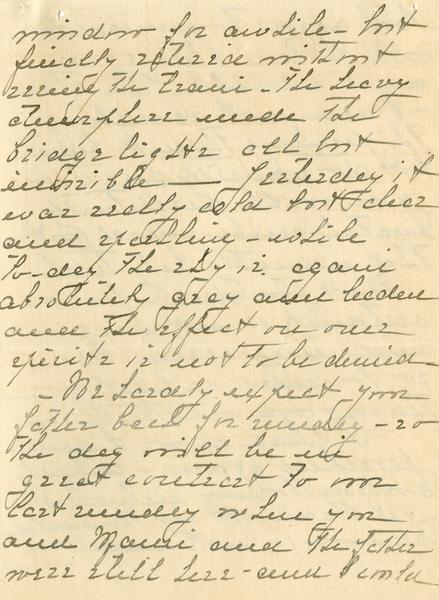 window for awhile - but
finally retired without
seeing the train - The heavy
atmosphere made the
bridge lights all but
invisible — Yesterday it
was really cold but clear
and sparkling - while
to-day the sky is again
absolutely grey and leaden
and the effect on our
spirits is not to be denied -
- We hardly expect your
father back for sunday - so
the day will be in
great contrast to our
last sunday when you
and Mami and the father
were still here - and I could